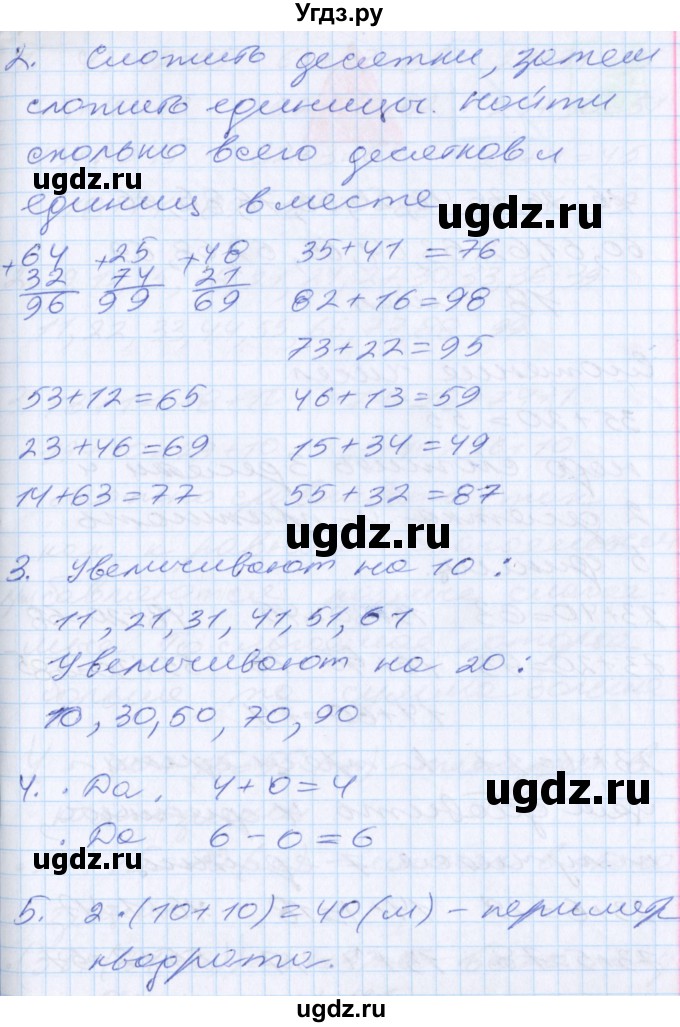 Угдз.ру
2. Сложить десятки, затем
сложить единицы. Найти
сколько всего десятков и
единиц вместе
ugdz.ru
ugdz.ru
+64 +25 +48 35+41=76
32 74 21 82+16=98
96 99 69
73+22=95
53+12=65 46+13=59
23+46=69 15+34=49
14+63=77 55+32=87
ugdz.ru
3. Увеличивают на 10:
11, 21, 31, 41, 51, 61
Увеличивают на 20:
10, 30, 50, 70, 90
ugdz.ru
4. . Да, 4+0=4
. Да 6-0=6
ugdz.ru
5. 2·(10+10)=40(м) – пеример
квадрата.
ugdz.ru